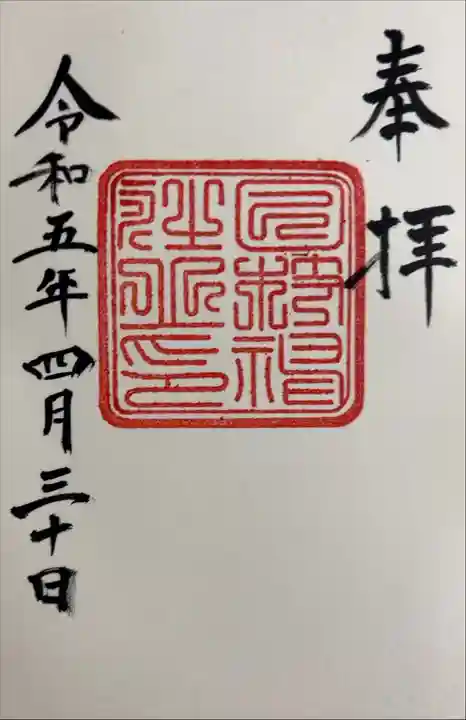 奉拝
令和五年四月三十日